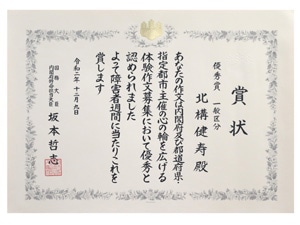 賞状
優秀賞 一般区分
北構健寿殿
あなたの作文は内閣府及び都道府県・
指定都市主催の心の輪を広げる
体験作文募集において優秀と
認められました
よって障害者週間に当たりこれを
賞します
令和二年十二月九日
国務大臣
坂本哲志